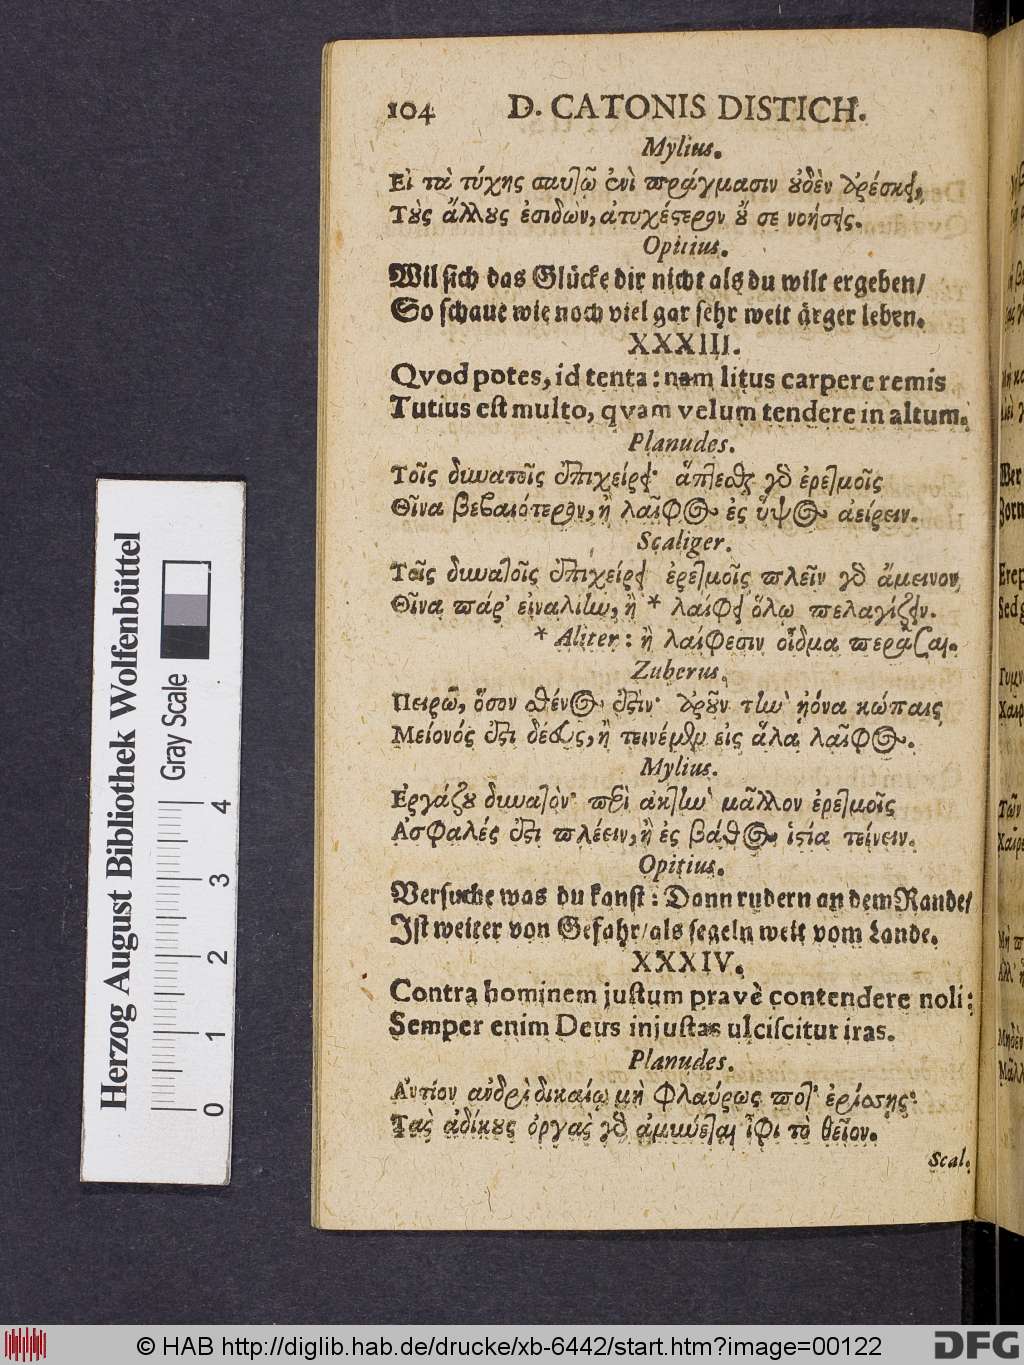 104 D. CATONIS DISTICH.
Mylius.
Εἰ τὰ τύχης σαυτῷ ἐνὶ πράγμασιν οὐδὲν ἀρέσκει,
Τοὺς ἄλλους ἐσιδὼν, ἀτυχέστερον οὔ σε νοήσεις.
Opitius.
Wil sich das Glücke dir nicht als du wilt ergeben/
So schaue wie noch viel gar sehr weit ärger leben.
XXXIII.
Qvod potes, id tenta: nam litus carpere remis
Tutius est multo, qvam velum tendere in altum.
Planudes.
Τοῖς δυνατοῖς ἐπιχείρει· ἅπτεσθαι γὰρ ἐρετμοῖς
Θῖνα βεβαιότερον, ἢ λαῖφος ἐς ὕψος ἀείρειν.
Scaliger.
Τοῖς δυνατοῖς ἐπιχείρει ἐρετμοῖς πλεῖν γὰρ ἄμεινον,
Θῖνα πάρ' εἰναλίην, ἢ * λαίφει ὅλῳ πελαγίζειν.
* Aliter: ἢ λαίφεσιν οἶδμα περᾶσαι.
Zuberus.
Πειρῶ, ὅσον σθένος ἐστίν· ἀροῦν τὴν ἠϊόνα κώπαις
Μείονός ἐστι δέους, ἢ τεινέμεν εἰς ἅλα λαῖφος.
Mylius.
Ἐργάζου δυνατόν· περὶ ἀκτὴν μᾶλλον ἐρετμοῖς
Ἀσφαλές ἐστι πλέειν, ἢ ἐς βάθος ἱστία τείνειν.
Opitius.
Versuche was du kanst: Dann rudern an dem Rande/
Ist weiter von Gefahr/als segeln weit vom Lande.
XXXIV.
Contra hominem justum pravè contendere noli:
Semper enim Deus injustas ulciscitur iras.
Planudes.
Ἀντίον ἀνδρὶ δικαίῳ μὴ φλαύρως ποτ' ἐρίσῃς·
Τὰς ἀδίκους ὀργὰς γὰρ ἀμύνεται ἶφι τὸ θεῖον.
Scal.
Herzog August Bibliothek Wolfenbüttel
Gray Scale
0 1 2 3 4
© HAB http://diglib.hab.de/drucke/xb-6442/start.htm?image=00122
DFG